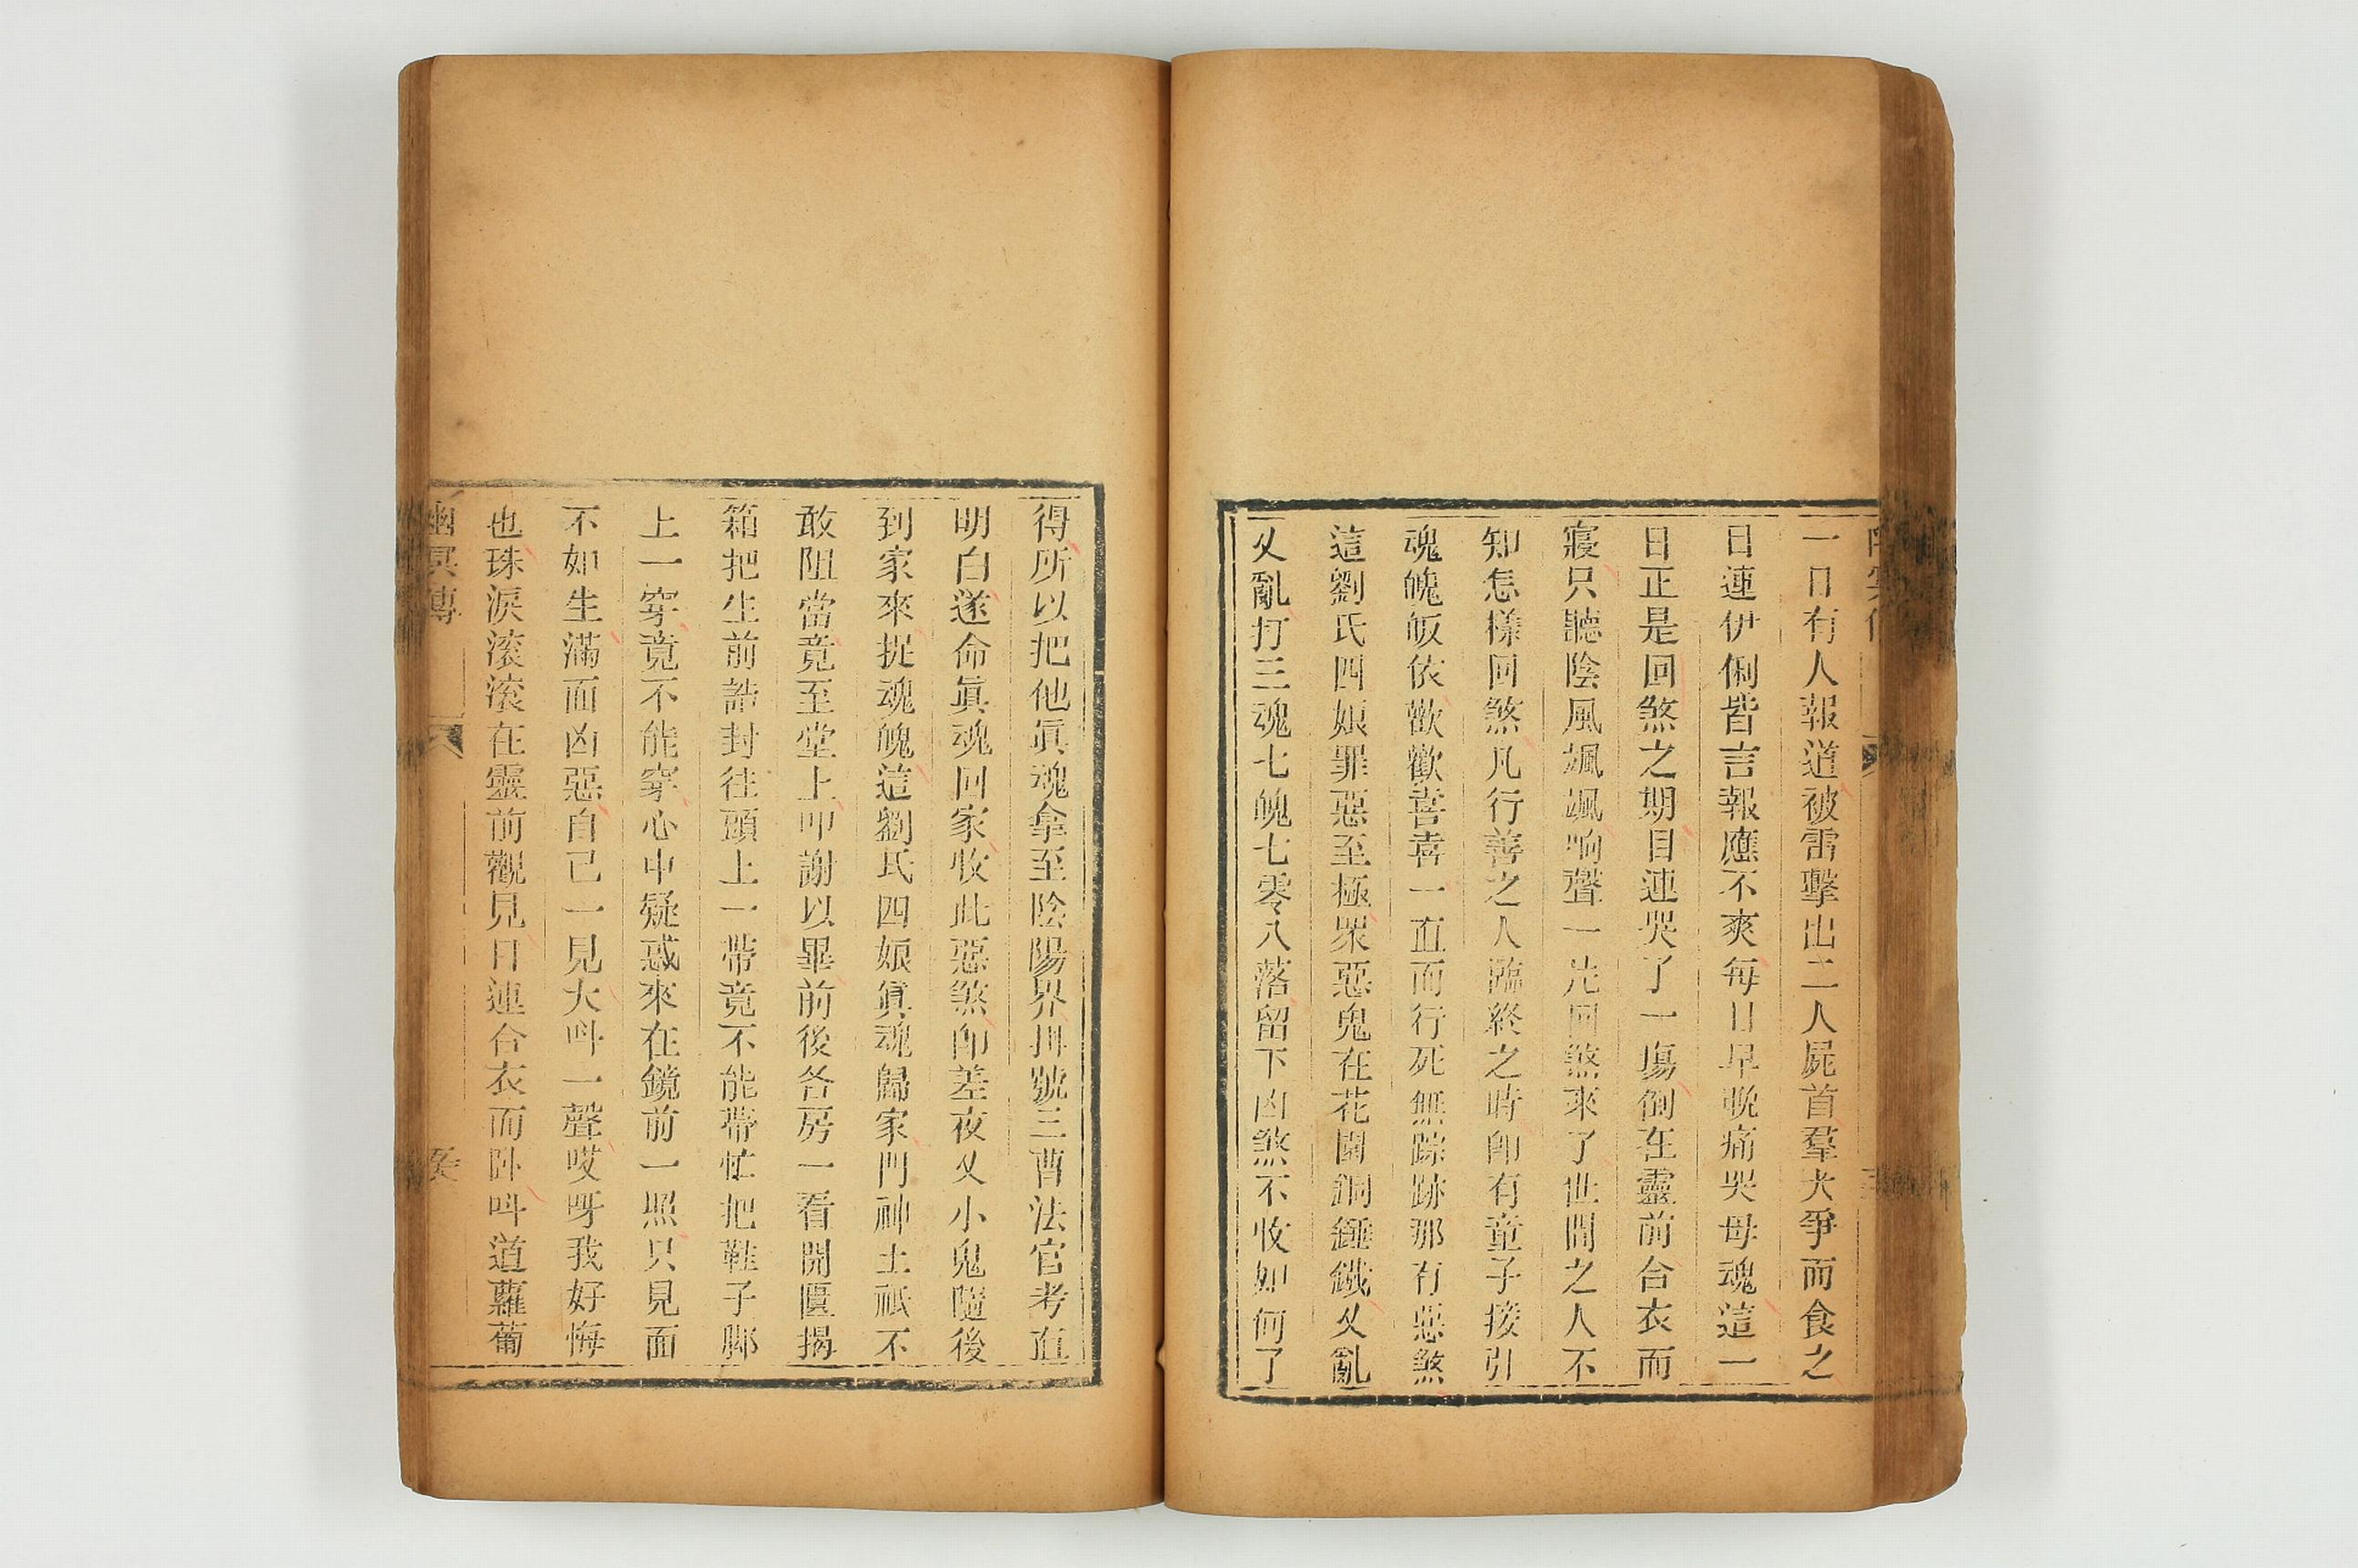 一日有人報道被雷擊出二人屍首羣犬爭而食之
目連伊俐皆言報應不爽每日早晚痛哭母魂這一
日正是回煞之期目連哭了一塲倒在靈前合衣而
寢只聽陰風颯颯响聲一片回煞來了世間之人不
知怎樣回煞凡行善之人臨終之時卽有童子接引
魂魄皈依歡歡喜喜一直而行死無踪跡那有惡煞
這劉氏四娘罪惡至極衆惡鬼在花園銅錘鐵叉亂
叉亂打三魂七魄七零八落留下凶煞不收如何了
得所以把他眞魂拿至陰陽界掛號三曹法官考直
明白遂命眞魂回家收此惡煞卽差夜叉小鬼隨後
到家來捉魂魄這劉氏四娘眞魂歸家門神土祇不
敢阻當竟至堂上叩謝以畢前後各房一看開匱揭
箱把生前誥封往頭上一帶竟不能帶忙把鞋子脚
上一穿竟不能穿心中疑惑來在鏡前一照只見面
不如生滿面凶惡自己一見大呌一聲哎呀我好悔
也珠淚滚滚在靈前觀見目連合衣而卧呌道蘿蔔
幽冥傳